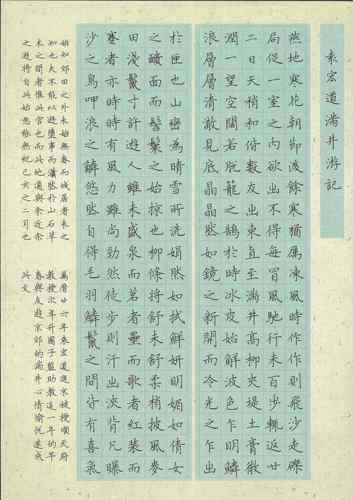 袁宏道滿井游記
燕地寒花朝節後餘寒猶厲凍風時作作則飛沙走礫
局促一室之内欲出不得每冒風馳行未百步輒返廿
二日天稍和偕數友出東直至滿井高柳夾堤土膏微
潤一望空闊若脫籠之鵠於時冰皮始解波色乍明鱗
浪層層清澈見底晶晶然如鏡之新開而冷光之乍出
於匣也山巒為晴雪所洗娟然如拭鮮妍明媚如倩女
之靧面而髻鬟之始掠也柳條將舒未舒柔梢披風麥
田淺鬣寸許遊人雖未盛泉而茗者罍而歌者紅裝而
蹇者亦時時有風力雖尚勁然徒步則汗出浹背凡曝
沙之鳥呷浪之鱗悠然自得毛羽鱗鬣之間皆有喜氣
始知郊田之外未始無春而城居者未之
知也夫能不以遊墮事而瀟然於山石草
木之間者惟此官也而此地適與余近余
之遊將自此始惡能無紀己亥之二月也
萬曆廿六年袁宏道進京被授順天府
教授次年升國子監助教這一年的早
春與友遊京郊的滿井心情愉悅遂成
此文